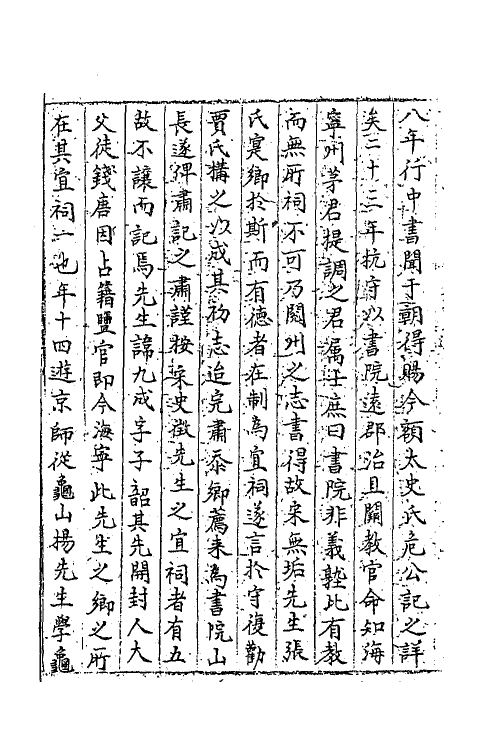 八年行中書聞于朝得賜今額太史氏危公記之詳
矣二十三年杭守以書院遠郡治且闕教官命知海
寧州茅君提調之君属壬庶曰書院非義塾比有教
而無所祠不可乃閱州之志書得故宋無垢先生張
氏寔鄉於斯而有德者在制為宜祠遂言於守復勸
賈氏構之以成其初志迨完肅忝鄉薦来為書院山
長遂俾肅記之肅謹按宋史徴先生之宜祠者有五
故不讓而記焉先生諱九成字子韶其先開封人大
父徒錢唐因占籍鹽官即今海寧此先生之鄉之所
在其宜祠一也年十四遊京師從龜山揚先生學龜